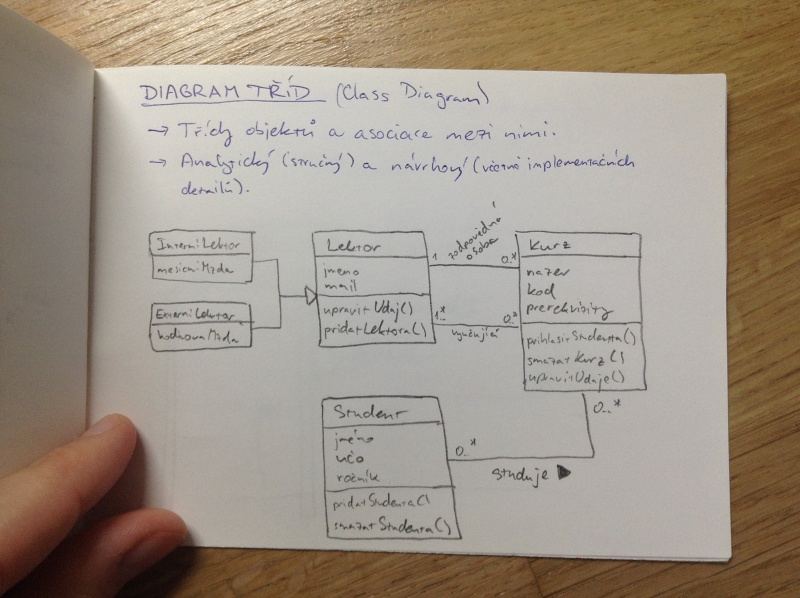 DIAGRAM TŘÍD (Class Diagram)
→ Třídy objektů a asociace mezi nimi.
→ Analytický (stručný) a návrhový (včetně implementačních
detailů).
InterniLektor
mesicniMzda
ExterniLektor
hodinovaMzda
Lektor
jmeno
mail
upravitUdaj()
pridatLektora()
1
zodpovědná
osoba
0..*
1..*
vyučující
0..*
Kurz
nazev
kod
prerekvizity
prihlasitStudenta()
smazatKurz()
upravitUdaje()
0..*
Student
jméno
učo
ročník
pridatStudenta()
smazatStudenta()
0..*
studuje ▶